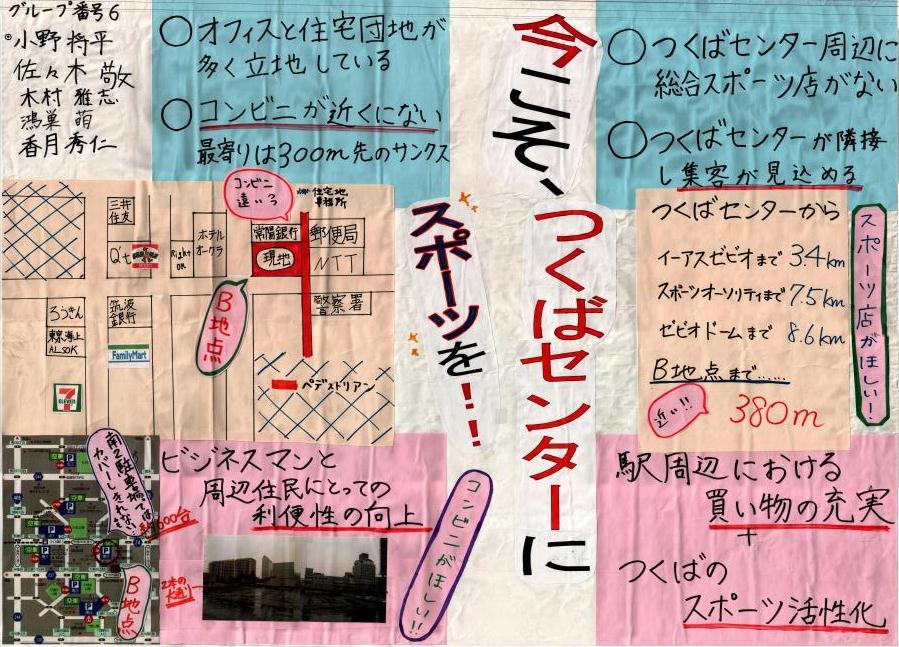 グループ番号6
小野 将平
佐々木 敬
木村 雅志
鴻巣 萌
香月 秀仁
○オフィスと住宅団地が
多く立地している
○コンビニが近くにない
最寄りは300m先のサンクス
今こそ、つくばセンターに
スポーツを!!
○つくばセンター周辺に
総合スポーツ店がない
○つくばセンターが隣接
し集客が見込める
コンビニ
遠いっ
住宅地
事務所
三井
住友
Q't
Right
on
ホテル
オークラ
常陽銀行
郵便局
現地
NTT
B地点
警察署
ろうきん
筑波
銀行
東京海上
ALSOK
FamilyMart
7
ELEVEN
ペデストリアン
つくばセンターから
イーアスゼビオまで 3.4km
スポーツオーソリティまで 7.5km
ゼビオドームまで 8.6km
B地点まで……
近い!!
380m
スポーツ店がほしい!
南2駐車場では
カバーしきれない
約600台
B地点
2本の
大通り
ビジネスマンと
周辺住民にとっての
利便性の向上
コンビニがほしい!!
駅周辺における
買い物の充実
+
つくばの
スポーツ活性化